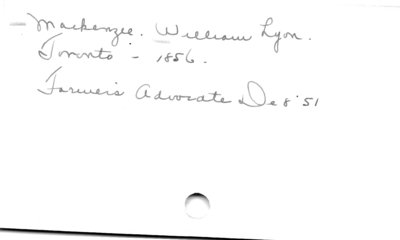 Mackenzie. William Lyon.
Toronto - 1856.
Farmer's Advocate De 8 '51